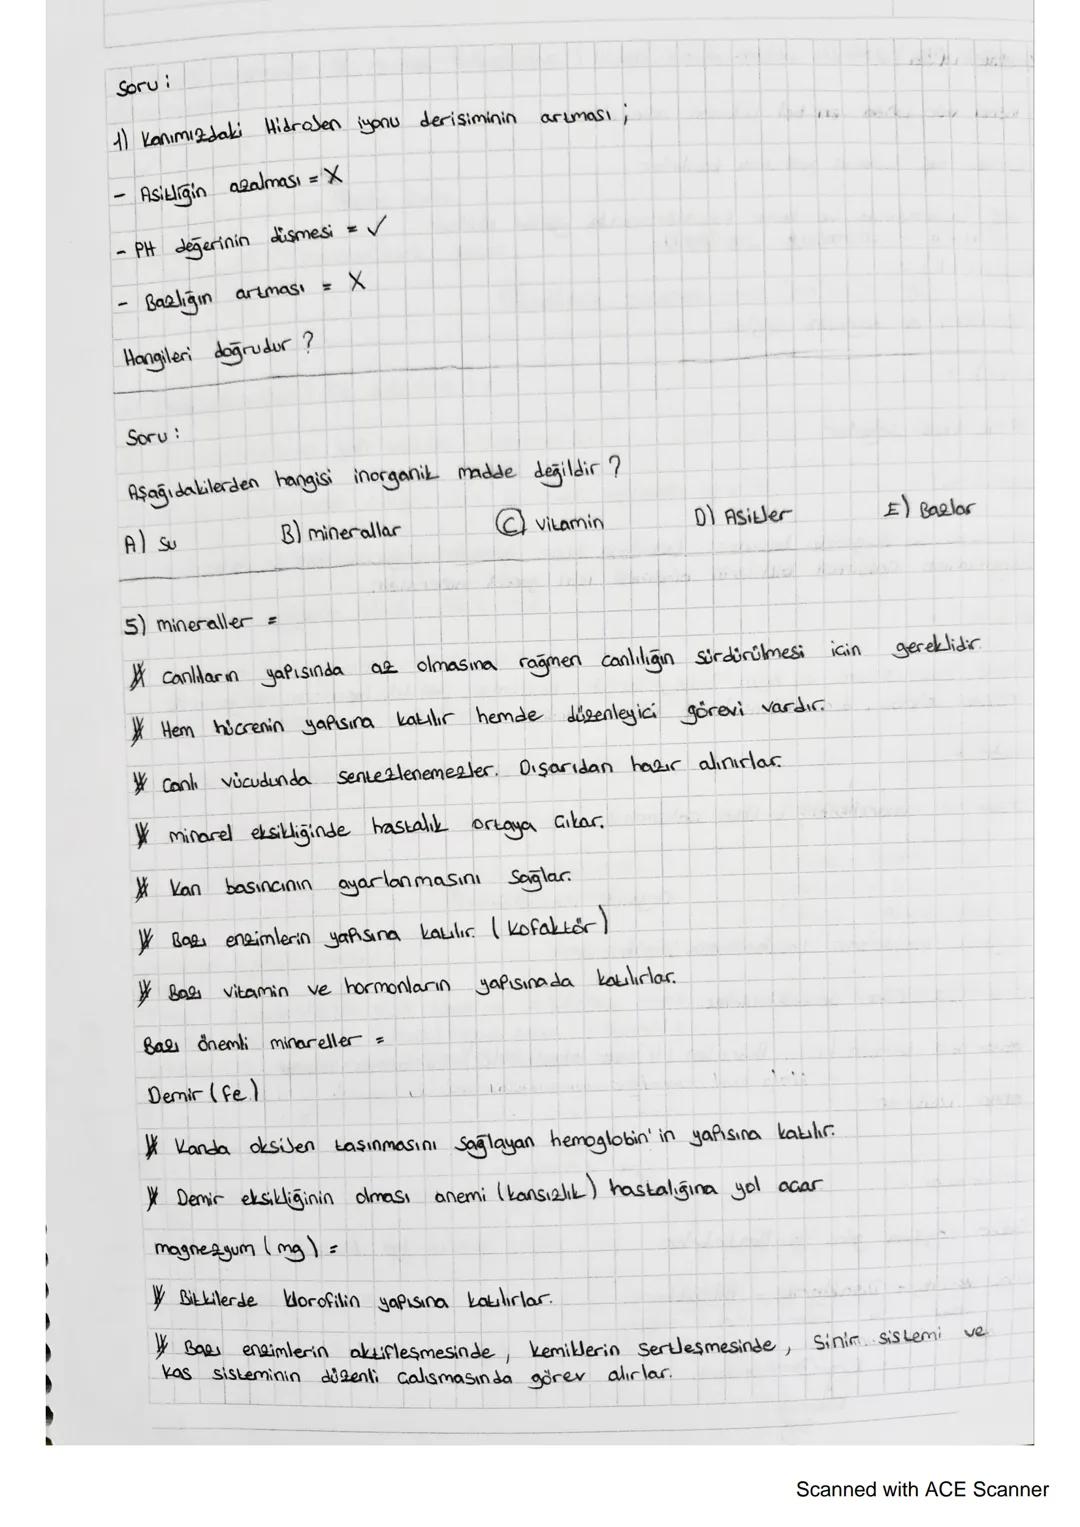 Soru :
1) Kanımızdaki Hidrojen iyonu derişiminin artması ;
- Asitliğin azalması = X
- PH değerinin düşmesi = ✓
- Bazlığın artması = X
Hangileri doğrudur ?
Soru :
Aşağıdakilerden hangisi inorganik madde değildir ?
A) Su B) minerallar C) vitamin D) Asitler E) Bazlar
5) mineraller =
* canlıların yapısında az olmasına rağmen canlılığın sürdürülmesi için gereklidir.
* Hem hücrenin yapısına katılır hemde düzenleyici görevi vardır.
* Canlı vücudunda sentezlenemezler. Dışarıdan hazır alınırlar.
* minarel eksikliğinde hastalık ortaya çıkar.
* Kan basıncının ayarlanmasını sağlar.
* Bazı enzimlerin yapısına katılır. (Kofaktör)
* Bazı vitamin ve hormonların yapısınada katılırlar.
Bazı önemli minareller =
Demir (fe)
* Kanda oksijen taşınmasını sağlayan hemoglobin'in yapısına katılır.
* Demir eksikliğinin olması anemi (kansızlık) hastalığına yol açar
magnezyum (mg) =
* Bitkilerde klorofilin yapısına katılırlar.
* Bazı enzimlerin aktifleşmesinde, kemiklerin sertleşmesinde, Sinir sistemi ve
kas sisteminin düzenli çalışmasında görev alırlar.
Scanned with ACE Scanner